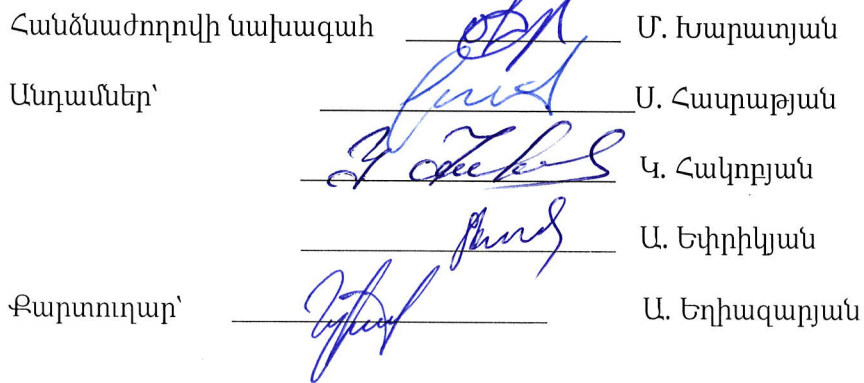 Հանձնաժողովի նախագահ ____________ Մ. Խարատյան
Անդամներ՝ ____________ Ս. Հասրաթյան
____________ Կ. Հակոբյան
____________ Ա. Եփրիկյան
Քարտուղար՝ ____________ Ա. Եղիազարյան